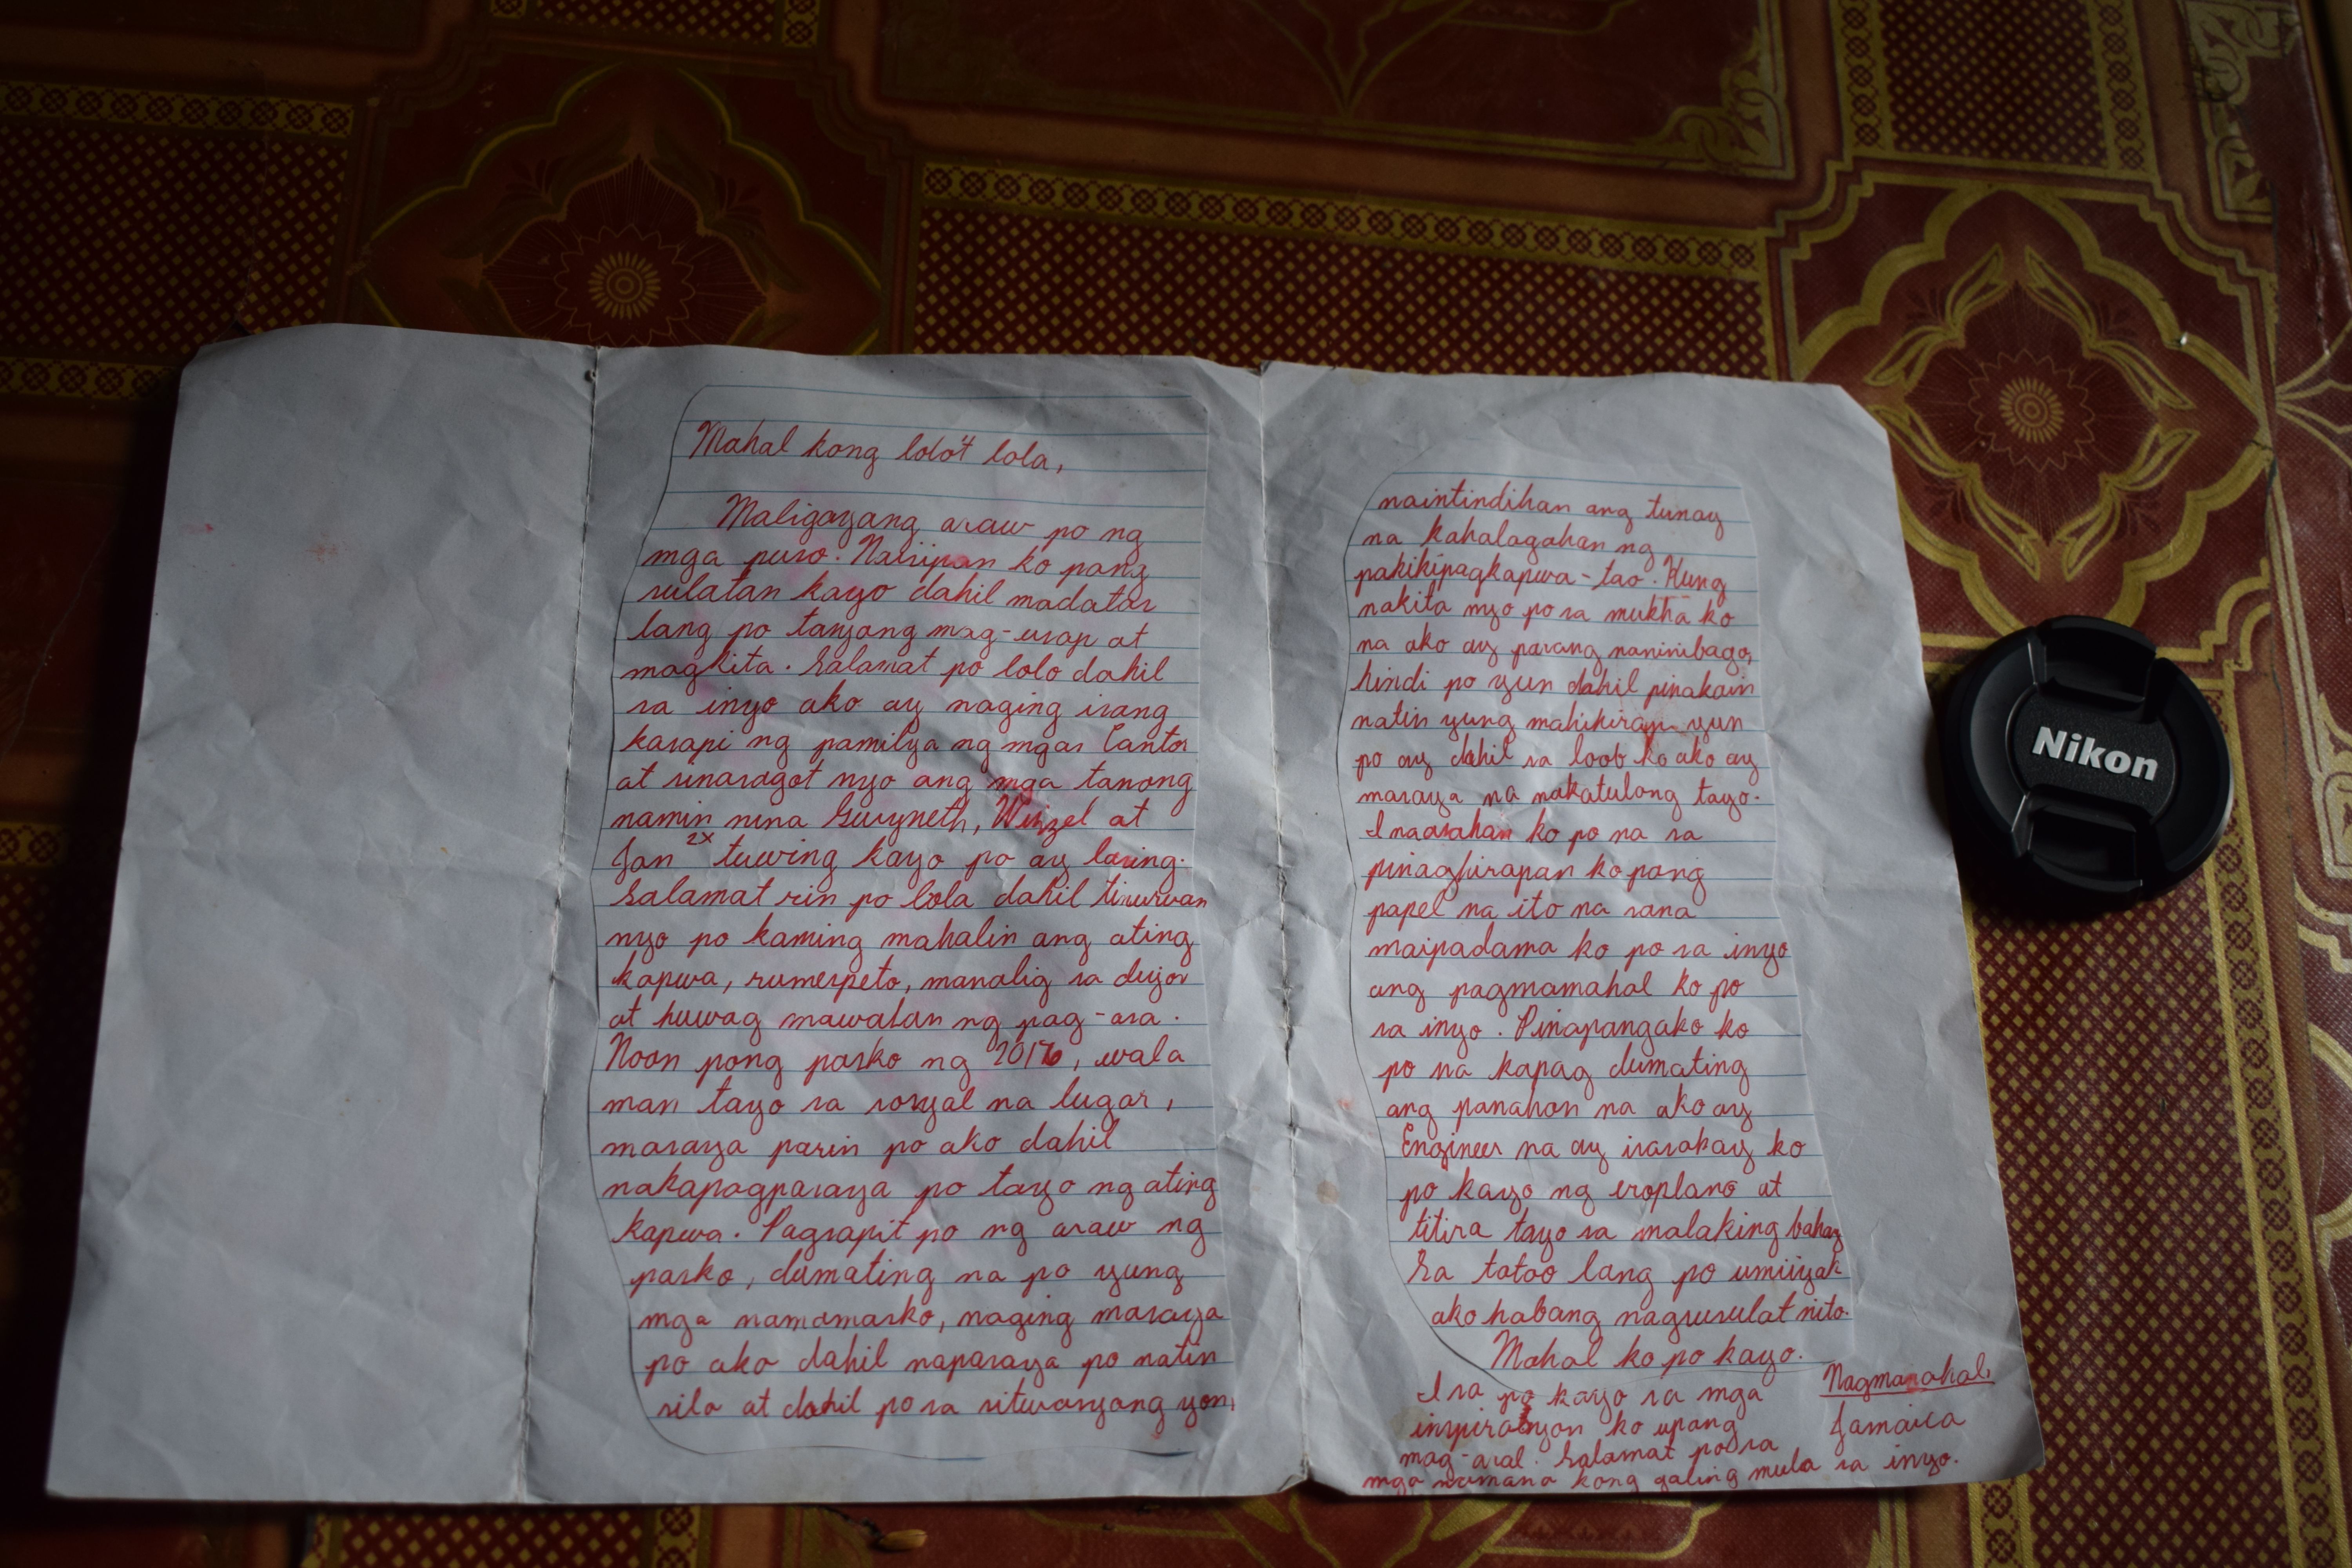 Mahal kong lolo't lola,
Maligayang araw po ng
mga puso. Naisipan ko pang
sulatan kayo dahil madatas
lang po tayong mag-usap at
magkita. Salamat po lolo dahil
sa inyo ako ay naging isang
kasapi ng pamilya ng mga Cantos
at sinasagot nyo ang mga tanong
namin nina Gwyneth, Winzel at
Jan 2x tuwing kayo po ay lasing.
Salamat rin po lola dahil tinuruan
nyo po kaming mahalin ang ating
kapwa, rumespeto, manalig sa diyos
at huwag mawalan ng pag-asa.
Noon pong pasko ng 2016, wala
man tayo sa sosyal na lugar,
masaya parin po ako dahil
nakapagpasaya po tayo ng ating
kapwa. Pagsapit po ng araw ng
pasko, dumating na po yung
mga namamasko, naging masaya
po ako dahil napasaya po natin
sila at dahil po sa sitwasyang yon,
naintindihan ang tunay
na kahalagahan ng
pakikipagkapwa-tao. Kung
nakita nyo po sa mukha ko
na ako ay parang naninibago,
hindi po yun dahil pinakain
natin yung mahihirap yun
po ay dahil sa loob ko ako ay
masaya na nakatulong tayo.
Inaasahan ko po na sa
pinaghirapan ko pang
papel na ito na sana
maipadama ko po sa inyo
ang pagmamahal ko po
sa inyo. Pinapangako ko
po na kapag dumating
ang panahon na ako ay
Engineer na ay isasakay ko
po kayo ng eroplano at
titira tayo sa malaking bahay
Sa totoo lang po umiiyak
ako habang nagsusulat nito.
Mahal ko po kayo.
Isa po kayo sa mga
inspirasyon ko upang
mag-aral. Salamat po sa
mga namana kong galing mula sa inyo.
Nagmamahal,
Jamaica
Nikon